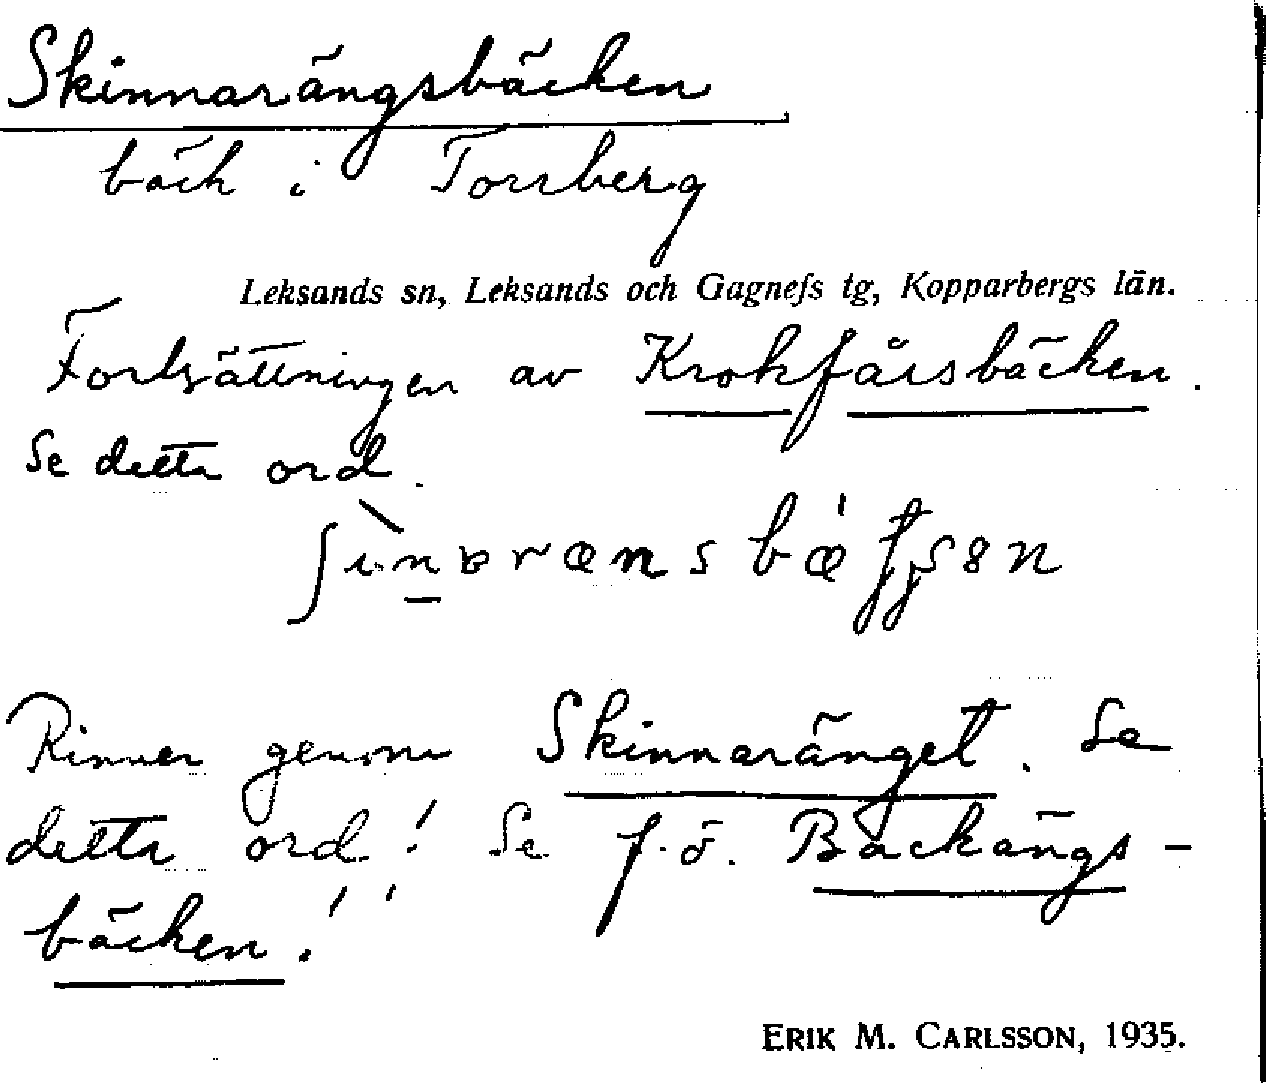 Skinnarängsbäcken
bäck i Torrberg
Leksands sn, Leksands och Gagnefs tg, Kopparbergs län.
Fortsättningen av Krokfårsbäcken.
Se detta ord.
Rinner genom Skinnaränget. Se
detta ord! Se f.ö. Backängs-
bäcken!
ERIK M. CARLSSON, 1935.